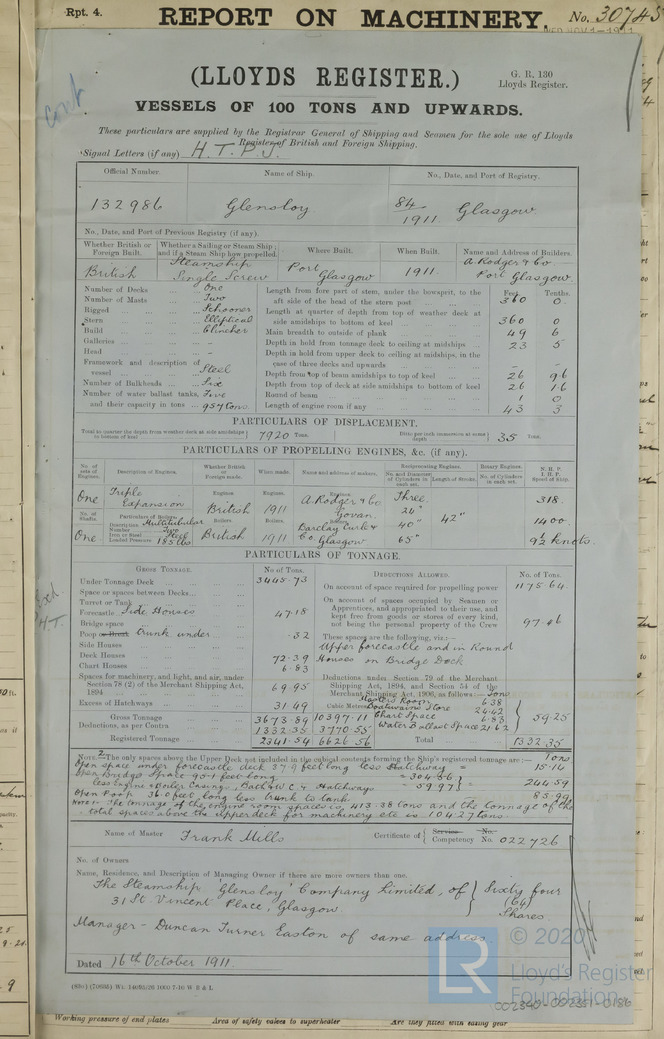 Rpt. 4. REPORT ON MACHINERY. No. 30745
WED NOV 1-1911
(LLOYDS REGISTER.)
G. R. 130
Lloyds Register.
cont
VESSELS OF 100 TONS AND UPWARDS.
These particulars are supplied by the Registrar General of Shipping and Seamen for the sole use of Lloyds
Register of British and Foreign Shipping.
Signal Letters (if any) H. T. P. J.
Official Number. Name of Ship. No., Date, and Port of Registry.
132986 Glensloy. 84/1911 Glasgow.
No., Date, and Port of Previous Registry (if any).
Whether British or Foreign Built. Whether a Sailing or Steam Ship; and if a Steam Ship how propelled. Where Built. When Built. Name and Address of Builders.
British Steamship Single Screw Port Glasgow 1911. A. Rodger & Co. Port Glasgow.
Number of Decks One
Number of Masts Two
Rigged Schooner
Stern Elliptical
Build Clincher
Galleries -
Head -
Framework and description of vessel Steel
Number of Bulkheads Six
Number of water ballast tanks, Five
and their capacity in tons 957 tons.
Feet. Tenths.
Length from fore part of stem, under the bowsprit, to the aft side of the head of the stern post 360 0.
Length at quarter of depth from top of weather deck at side amidships to bottom of keel 360 0
Main breadth to outside of plank 49 6
Depth in hold from tonnage deck to ceiling at midships 23 5
Depth in hold from upper deck to ceiling at midships, in the case of three decks and upwards - -
Depth from top of beam amidships to top of keel 26 96
Depth from top of deck at side amidships to bottom of keel 26 16
Round of beam 1 0
Length of engine room if any 43 3
PARTICULARS OF DISPLACEMENT.
Total to quarter the depth from weather deck at side amidships to bottom of keel 7920 Tons. Ditto per inch immersion at same depth 35 Tons.
PARTICULARS OF PROPELLING ENGINES, &c. (if any).
No. of sets of Engines. Description of Engines. Whether British or Foreign made. When made. Name and address of makers. Reciprocating Engines. Rotary Engines. N.H.P. I.H.P. Speed of Ship.
No. and Diameter of Cylinders in each set. Length of Stroke. No. of Cylinders in each set.
One Triple Expansion Engines. British Engines. 1911 Engines. A. Rodger & Co Govan. Three 24" 40" 65" 42" 318.
No. of Shafts. Particulars of Boilers
One Description Multitubular
Number Two
Iron or Steel Steel
Loaded Pressure 185 lbs
Boilers British Boilers 1911 Boilers Barclay Curle & Co. Glasgow 1400. 9½ knots.
PARTICULARS OF TONNAGE.
GROSS TONNAGE. No. of Tons.
Under Tonnage Deck 3445.73
Space or spaces between Decks
Turret or Trunk
Forecastle Side Houses 47.18
Bridge space
Poop or Break Trunk under .32
Side Houses
Deck Houses 72.39
Chart Houses 6.83
Spaces for machinery, and light, and air, under Section 78 (2) of the Merchant Shipping Act, 1894 69.95
Excess of Hatchways 31.49 Cubic Metres.
Gross Tonnage 3673.89 10397.11
Deductions, as per Contra 1332.35 3770.55
Registered Tonnage 2341.54 6626.56
DEDUCTIONS ALLOWED. No. of Tons.
On account of space required for propelling power 1175.64.
On account of spaces occupied by Seamen or Apprentices, and appropriated to their use, and kept free from goods or stores of every kind, not being the personal property of the Crew 97.46
These spaces are the following, viz.:—
Upper forecastle and in Round
Houses on Bridge Deck
Deductions under Section 79 of the Merchant Shipping Act, 1894, and Section 54 of the Merchant Shipping Act, 1906, as follows:— Tons
Masters Room 6.38
Boatswains Store 24.42
Chart Space 6.83
Water Ballast Space 21.62
59.25
Total 1332.35
NOTE.—The only spaces above the Upper Deck not included in the cubical contents forming the Ship's registered tonnage are:— Tons
Open space under forecastle deck 37.9 feet long less Hatchway = 15.14
Open Bridge Space 90.1 feet long = 304.56
less Engine & Boiler Casings, Bath & W.C. & Hatchways = 59.97 244.59
Open Poop 36.0 feet long less trunk to tank 85.99
Note 1 - The tonnage of the engine room spaces is, 413.38 tons and the tonnage of the
total spaces above the upper deck for machinery etc is 104.27 tons.
Name of Master Frank Mills Certificate of Service No.
Competency No. 022726
No. of Owners
Name, Residence, and Description of Managing Owner if there are more owners than one.
The Steamship 'Glensloy' Company Limited, of
31 St. Vincent Place, Glasgow.
Sixty four
(64)
Shares
Manager - Duncan Turner Easton of same address.
Dated 16th October 1911.
© 2020
LR
Lloyd's Register
Foundation
002340-002351-0186
Working pressure of end plates Area of safety valves to superheater Are they fitted with easing gear